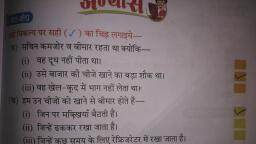 अभ्यास
सही विकल्प पर सही (✓) का चिह्न लगाइये—
सचिन कमजोर व बीमार रहता था क्योंकि—
(i) वह दूध नहीं पीता था।
(ii) उसे बाजार की चीजे खाने का बड़ा शौक था।
(iii) वह खेल-कूद में भाग नहीं लेता था।
हम उन चीजों को खाने से बीमार होते हैं—
(i) जिन पर मक्खियाँ बैठती हैं।
(ii) जिन्हें ढककर रखा जाता है।
(iii) जिन्हें कुछ समय के लिए रेफ्रिजरेटर में रखा जाता है।